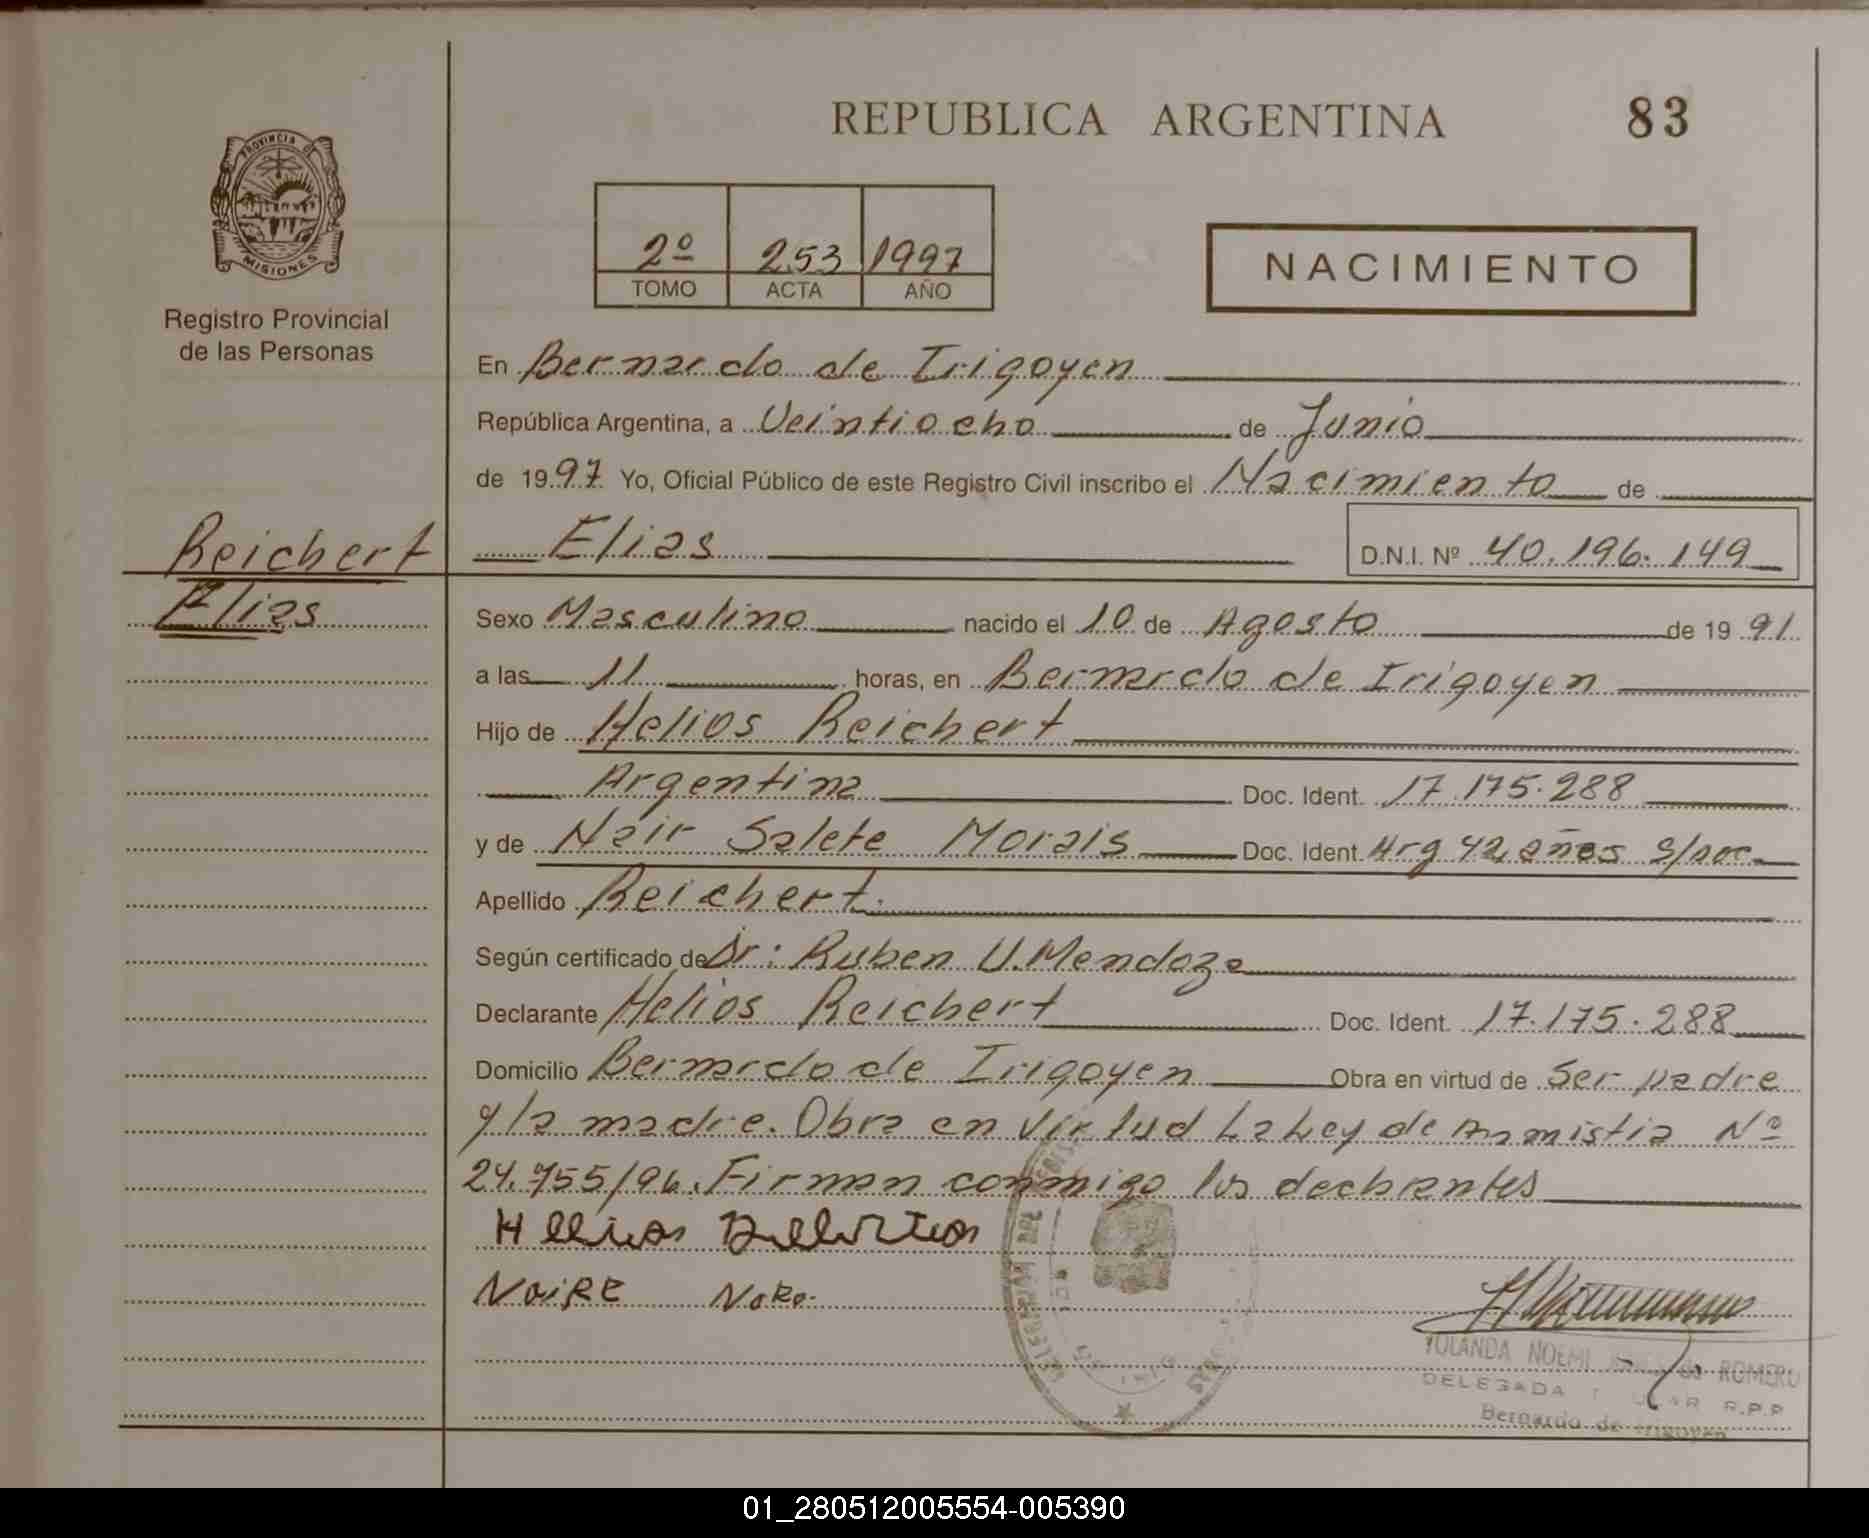 REPUBLICA ARGENTINA 83
PROVINCIA DE
MISIONES
Registro Provincial
de las Personas
2º 253 1997
TOMO ACTA AÑO
NACIMIENTO
En Bernardo de Irigoyen
República Argentina, a Veintiocho de Junio
de 1997 Yo, Oficial Público de este Registro Civil inscribo el Nacimiento de
Reichert
Elias
Elias D.N.I. Nº 40.196.149
Sexo Masculino nacido el 10 de Agosto de 1991
a las 11 horas, en Bernardo de Irigoyen
Hijo de Helios Reichert
Argentina Doc. Ident. 17.175.288
y de Nair Salete Morais Doc. Ident. Arg 42 años s/doc.
Apellido Reichert.
Según certificado de Dr: Ruben U. Mendoza
Declarante Helios Reichert Doc. Ident. 17.175.288
Domicilio Bernardo de Irigoyen Obra en virtud de Ser padre
y la madre. Obra en virtud La Ley de Amnistia Nº
24.755/96. Firman conmigo los declarantes
YOLANDA NOEMI de ROMERO
DELEGADA R.P.P
Bernardo de Irigoyen
01_280512005554-005390